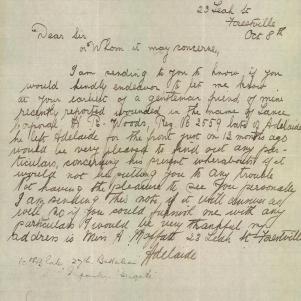 23 Leah St
Forestville
Oct 8th
Dear Sir
or Whom it may concerne,
I am sending to you to know if you
would kindly endeavor to let me know
at your earliest of a gentleman friend of mine
recently reported wounded in the name of Lance
Corporal A. B. Woods Reg No 3559 late of Adelaide
he left Adelaide for the front just on 12 months ago
would be very pleased to find out any par-
ticulars, concerning his present whereabouts if it
would not be putting you to any trouble
Not having the pleasure to see you personally
I am sending this note, if it will answer as
well so if you could furnish me with any
particulars I would be very thankful my
address is Miss A Moffatt 23 Leah St Forestville
Adelaide
27th Battalion